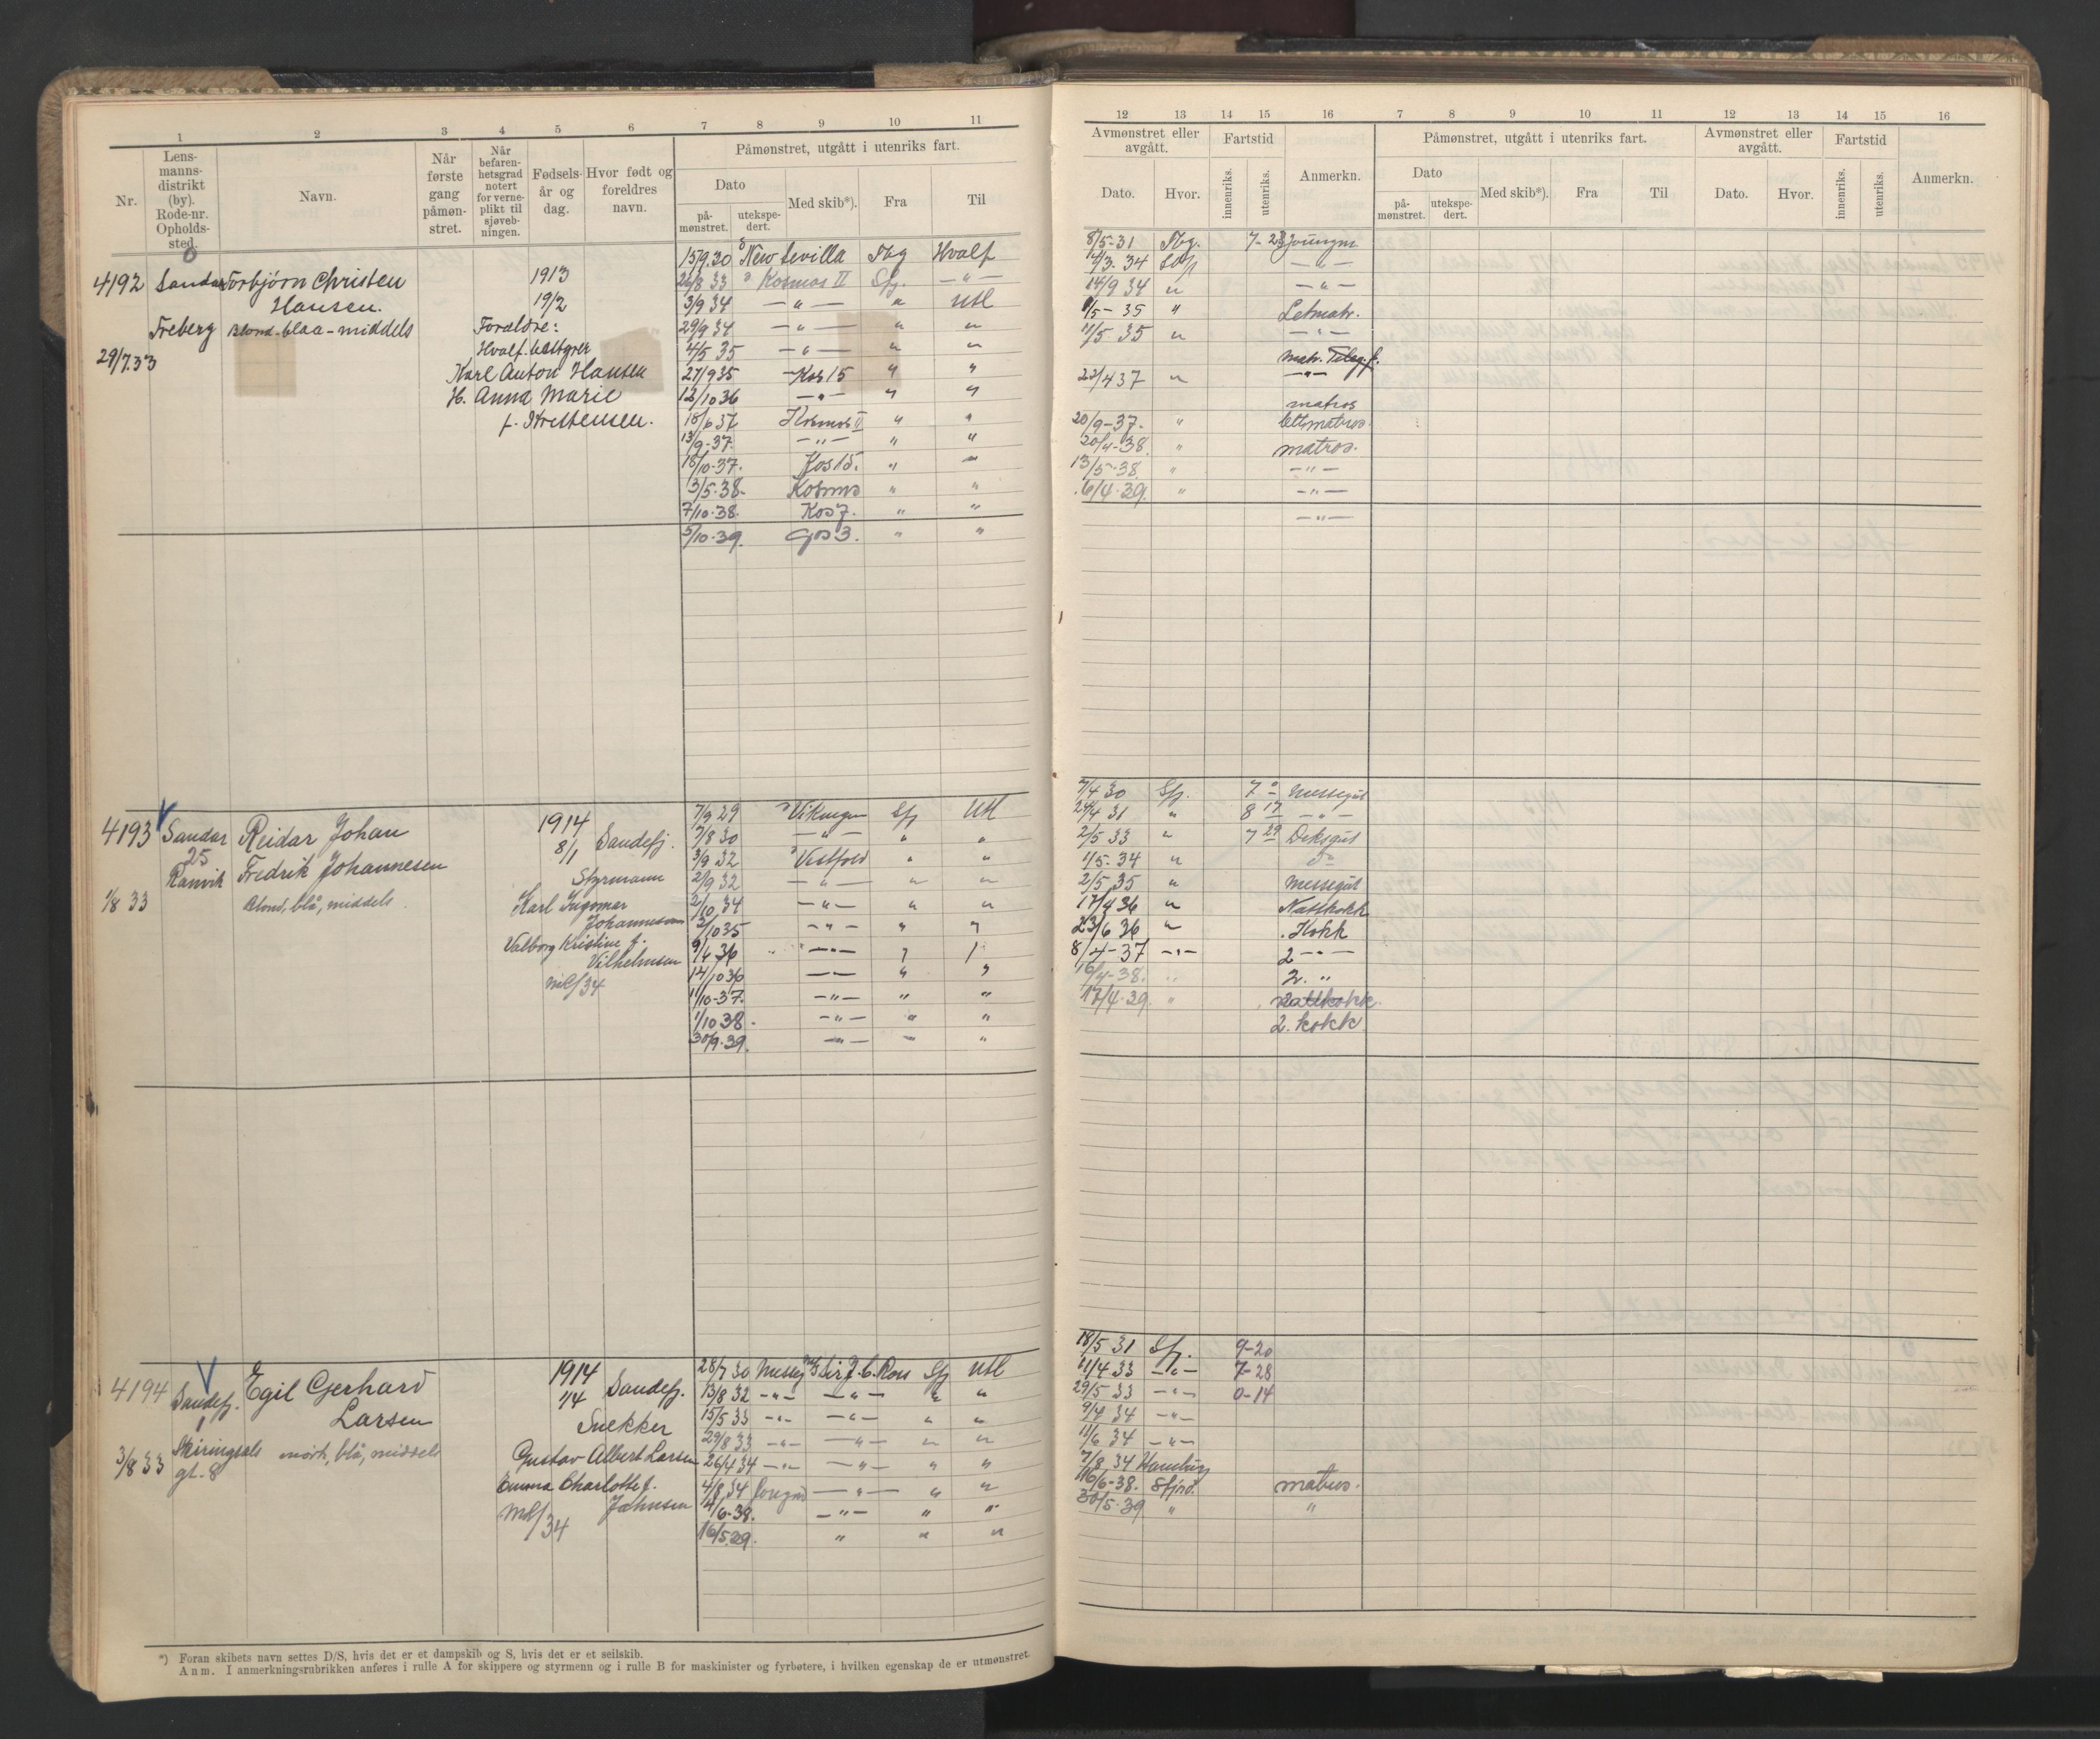 1 2 3 4 5 6 7 8 9 10 11
Nr.
Lens-
manns-
distrikt
(by).
Rode-nr.
Opholds-
sted.
Navn.
Når
første
gang
påmøn-
stret.
Når
befaren-
hetsgrad
notert
for verne-
plikt til
sjøveb-
ningen.
Fødsels-
år og
dag.
Hvor født og
foreldres
navn.
Påmønstret, utgått i utenriks fart.
Dato
på-
mønstret.
utekspe-
dert.
Med skib*).
Fra
Til
4192 Sandar Torbjörn Christen
Hansen.
Freberg Blond-blaa-middels
29/7.33
1913
19/2
Foreldre:
Karl Anton Hansen
H. Anna Marie
15/9.30 New Sevilla Tbg Hvalf
26/8 33 Kosmos II Sfj. -"-
3/9 34 -"- " Utl
29/9 34 -"- " "
4/5 35 -"- " "
27/9 35 Kos 15 " "
12/10 36 -"- " "
18/6 37 Kosmos II " "
13/9-37. -"- " "
18/10-37. Kos 15. " "
3/5-38. Kosmos " "
7/10-38. Kos 7. " "
5/10-39. Gos 3. " "
4193 Sandar Reidar Johan
25
Ranvik Fredrik Johannesen
1/8 33 Blond, blå, middels.
1914
8/1 Sandefj.
Styrmann
Karl Ingomar
Johannesen
Valborg Kristine f.
Vilhelmsen
mil/34
7/9 29 Vikingen Sfj Utl
7/8 30 -"- " "
3/9 32 Vestfold " "
2/9 32 -"- " "
2/10 34 -"- " "
2/10 35 -"- " "
9/4 36 -"-
14/10 36 -"- " "
11/10-37. -"- " "
1/10 38. -"- " "
30/9-39. -"- "
4194 Sandefj. Egil Gerhard
1 Larsen
Skiringsals
gt. 8
3/8 33 mörk, blå, middels
1914
1/4 Sandefj.
Snekker
Gustav Albert Larsen
Emma Charlotte f.
Johnsen
mil/34
28/7 30 Sir J. C. Ross Sfj Utl
13/8 32 -"- -"- " "
15/5 33 -"- -"- " "
29/8 33 -"- -"- " "
26/4 34 -"- -"- " "
4/8 34 -"- " "
14/6-38. -"- " "
16/5.39. " " "
*) Foran skibets navn settes D/S, hvis det er et dampskib og S, hvis det er et seilskib.
Anm. I anmerkningsrubrikken anføres i rulle A for skippere og styrmenn og i rulle B for maskinister og fyrbøtere, i hvilken egenskap de er utmønstret.
12 13 14 15 16 7 8 9 10 11 12 13 14 15 16
Avmønstret eller
avgått.
Dato.
Hvor.
Fartstid
innenriks.
utenriks.
Anmerkn.
Påmønstret, utgått i utenriks fart.
Dato
på-
mønstret.
utekspe-
dert.
Med skib*).
Fra
Til
Avmønstret eller
avgått.
Dato.
Hvor.
Fartstid
innenriks.
utenriks.
Anmerkn.
8/5-31 Tbg. 7-23 Joungm
-"-
14/9 34 " -"-
1/5-35 " Letmatr.
11/5 35 " -"-
22/4 37 " -"-
matros
20/9-37. " lettmatros.
20/4-38. " matros.
13/5-38. " -"-
6/4.39. " -"-
-"-
7/4 30 Sfj. Messegut
24/4 31 " 8 17 -"-
2/5 33 " 7 29 Deksgut
1/5-34 "
2/5 35 " Messegut
17/4 36 " Nattkokk
23/6 36 " Kokk
8/4-37 -"- 2 -"-
16/4-38. 2. "
17/4.39. " nattkokk.
2. kokk
18/5 31 Sfj. 9-20
11/4 33 -"- 7-28
29/5 33 -"- 0-14
9/4 34 -"-
11/6 34 -"-
7/8 34 Hamburg
16/6-38. Sfjord. matros.
30/5-39 " "